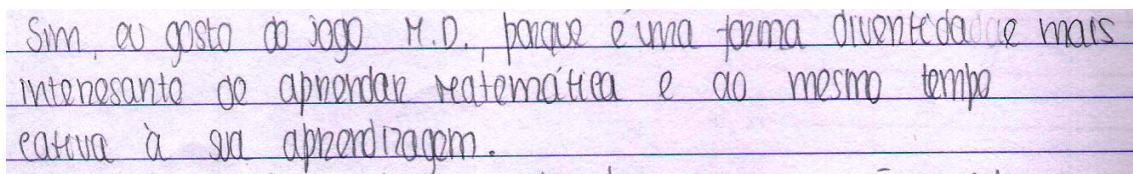 Sim, eu gosto do jogo M.D., porque é uma forma divertida e mais
interesante de aprender Matemática e ao mesmo tempo
cativa à sua aprendizagem.